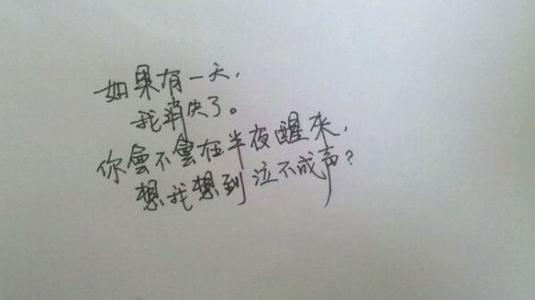 如果有一天，
我消失了。
你會不會在半夜醒来，
想我想到泣不成声？